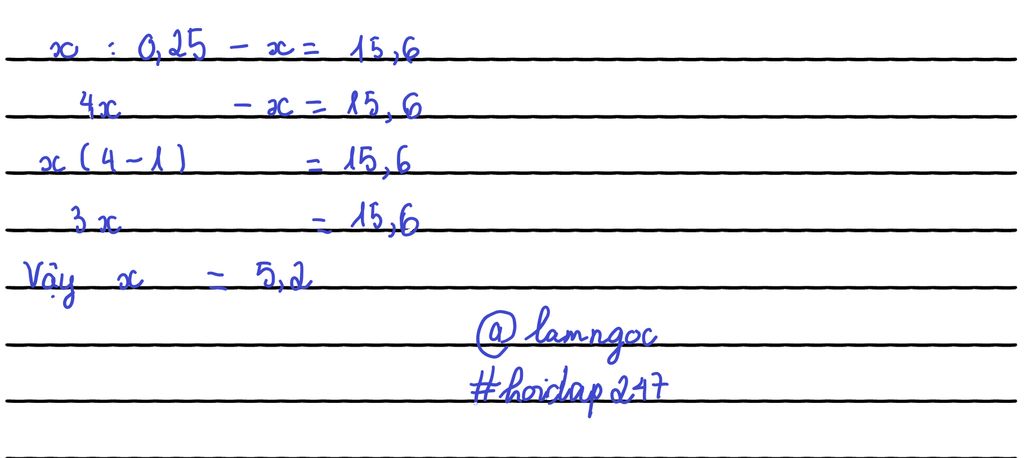 x : 0,25 - x = 15,6
4x - x = 15,6
x (4 - 1) = 15,6
3x = 15,6
Vậy x = 5,2
@ lamngoc
#hoidap247